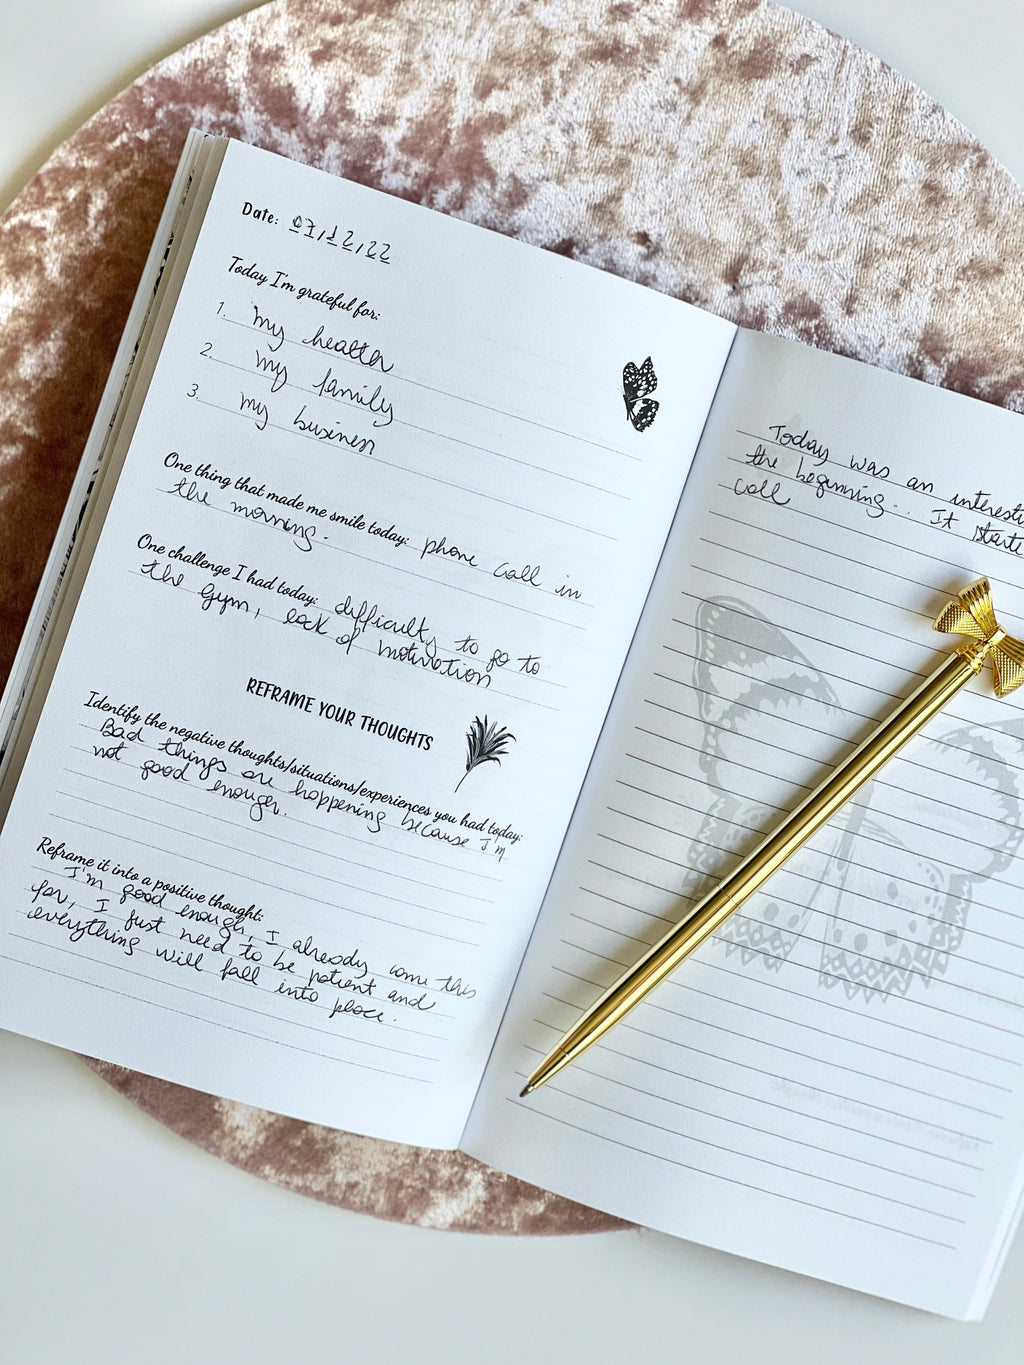 Date: 07/12/22
Today I'm grateful for:
1. my health
2. my family
3. my business
One thing that made me smile today: phone call in
the morning.
One challenge I had today: difficulty to go to
the gym, lack of motivation
REFRAME YOUR THOUGHTS
Identify the negative thoughts/situations/experiences you had today:
Bad things are happening because I'm
not good enough.
Reframe it into a positive thought:
I'm good enough, I already come this
far, I just need to be patient and
everything will fall into place.
Today was an interesti
the beginning... It starte
call